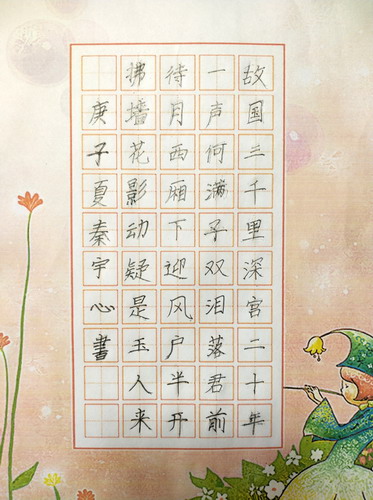 故国三千里深宫二十年
一声何满子双泪落君前
待月西厢下迎风户半开
拂墙花影动疑是玉人来
庚子夏秦宇心書